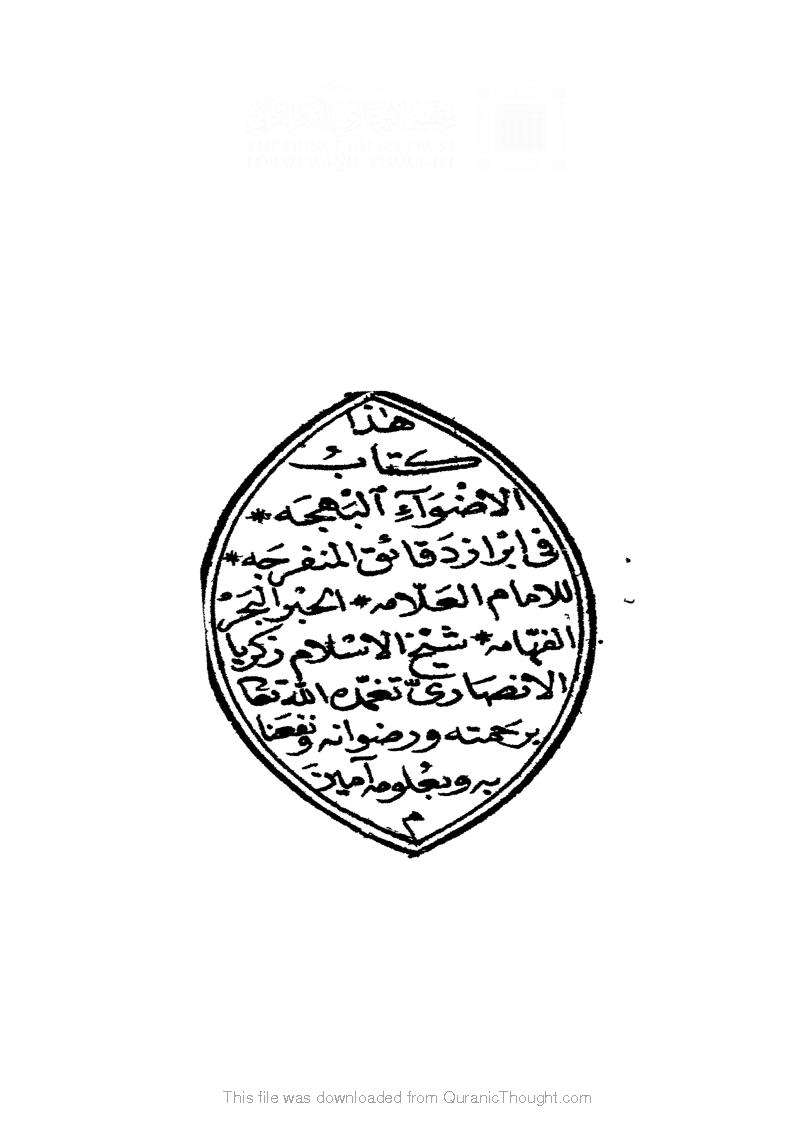 هٰذا
كتابُ
الاضوَآءِ ٱلبَهِجَه *
فى ابْراز دَقائق المنفرجَه *
للامام العَلّامه * الحَبْر البَحْرُ
الفهّامه * شيْخ الاسْلام زكريا
الانصَارىّ تغمّده الله تعالى
برحمته ورضوانه ونفعَنا
به وبعُلومه آمين
م
This file was downloaded from QuranicThought.com